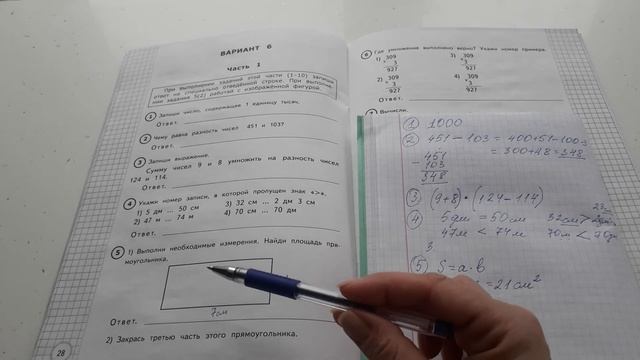 ВАРИАНТ 6
Часть 1
При выполнении заданий этой части (1–10) запиши
ответ на специально отведённой строке. При выполне-
нии задания 5(2) работай с изображённой фигурой.
1 Запиши число, содержащее 1 единицу тысяч.
Ответ.
2 Чему равна разность чисел 451 и 103?
Ответ.
3 Запиши выражение.
Сумму чисел 9 и 8 умножить на разность чисел
124 и 114.
Ответ.
4 Укажи номер записи, в которой пропущен знак «>».
1) 5 дм ... 50 см 3) 32 см ... 2 дм 3 см
2) 47 м ... 74 м 4) 70 см ... 70 дм
Ответ.
5 1) Выполни необходимые измерения. Найди площадь пря-
моугольника.
7см
Ответ.
2) Закрась третью часть этого прямоугольника.
28
6 Где умножение выполнено верно? Укажи номер примера.
1) 309 3) 309
3 3
927 927
2) 309 4) 309
3 3
927 927
Ответ.
Вычисли.
1 1000
2 451 – 103 = 400+51-100-3
= 300+48=348
- 451
103
348
3 (9+8) • (124-114)
4 5дм = 50см 32см >
47м < 74м 70м <
3
5 S=a·b
=21см²